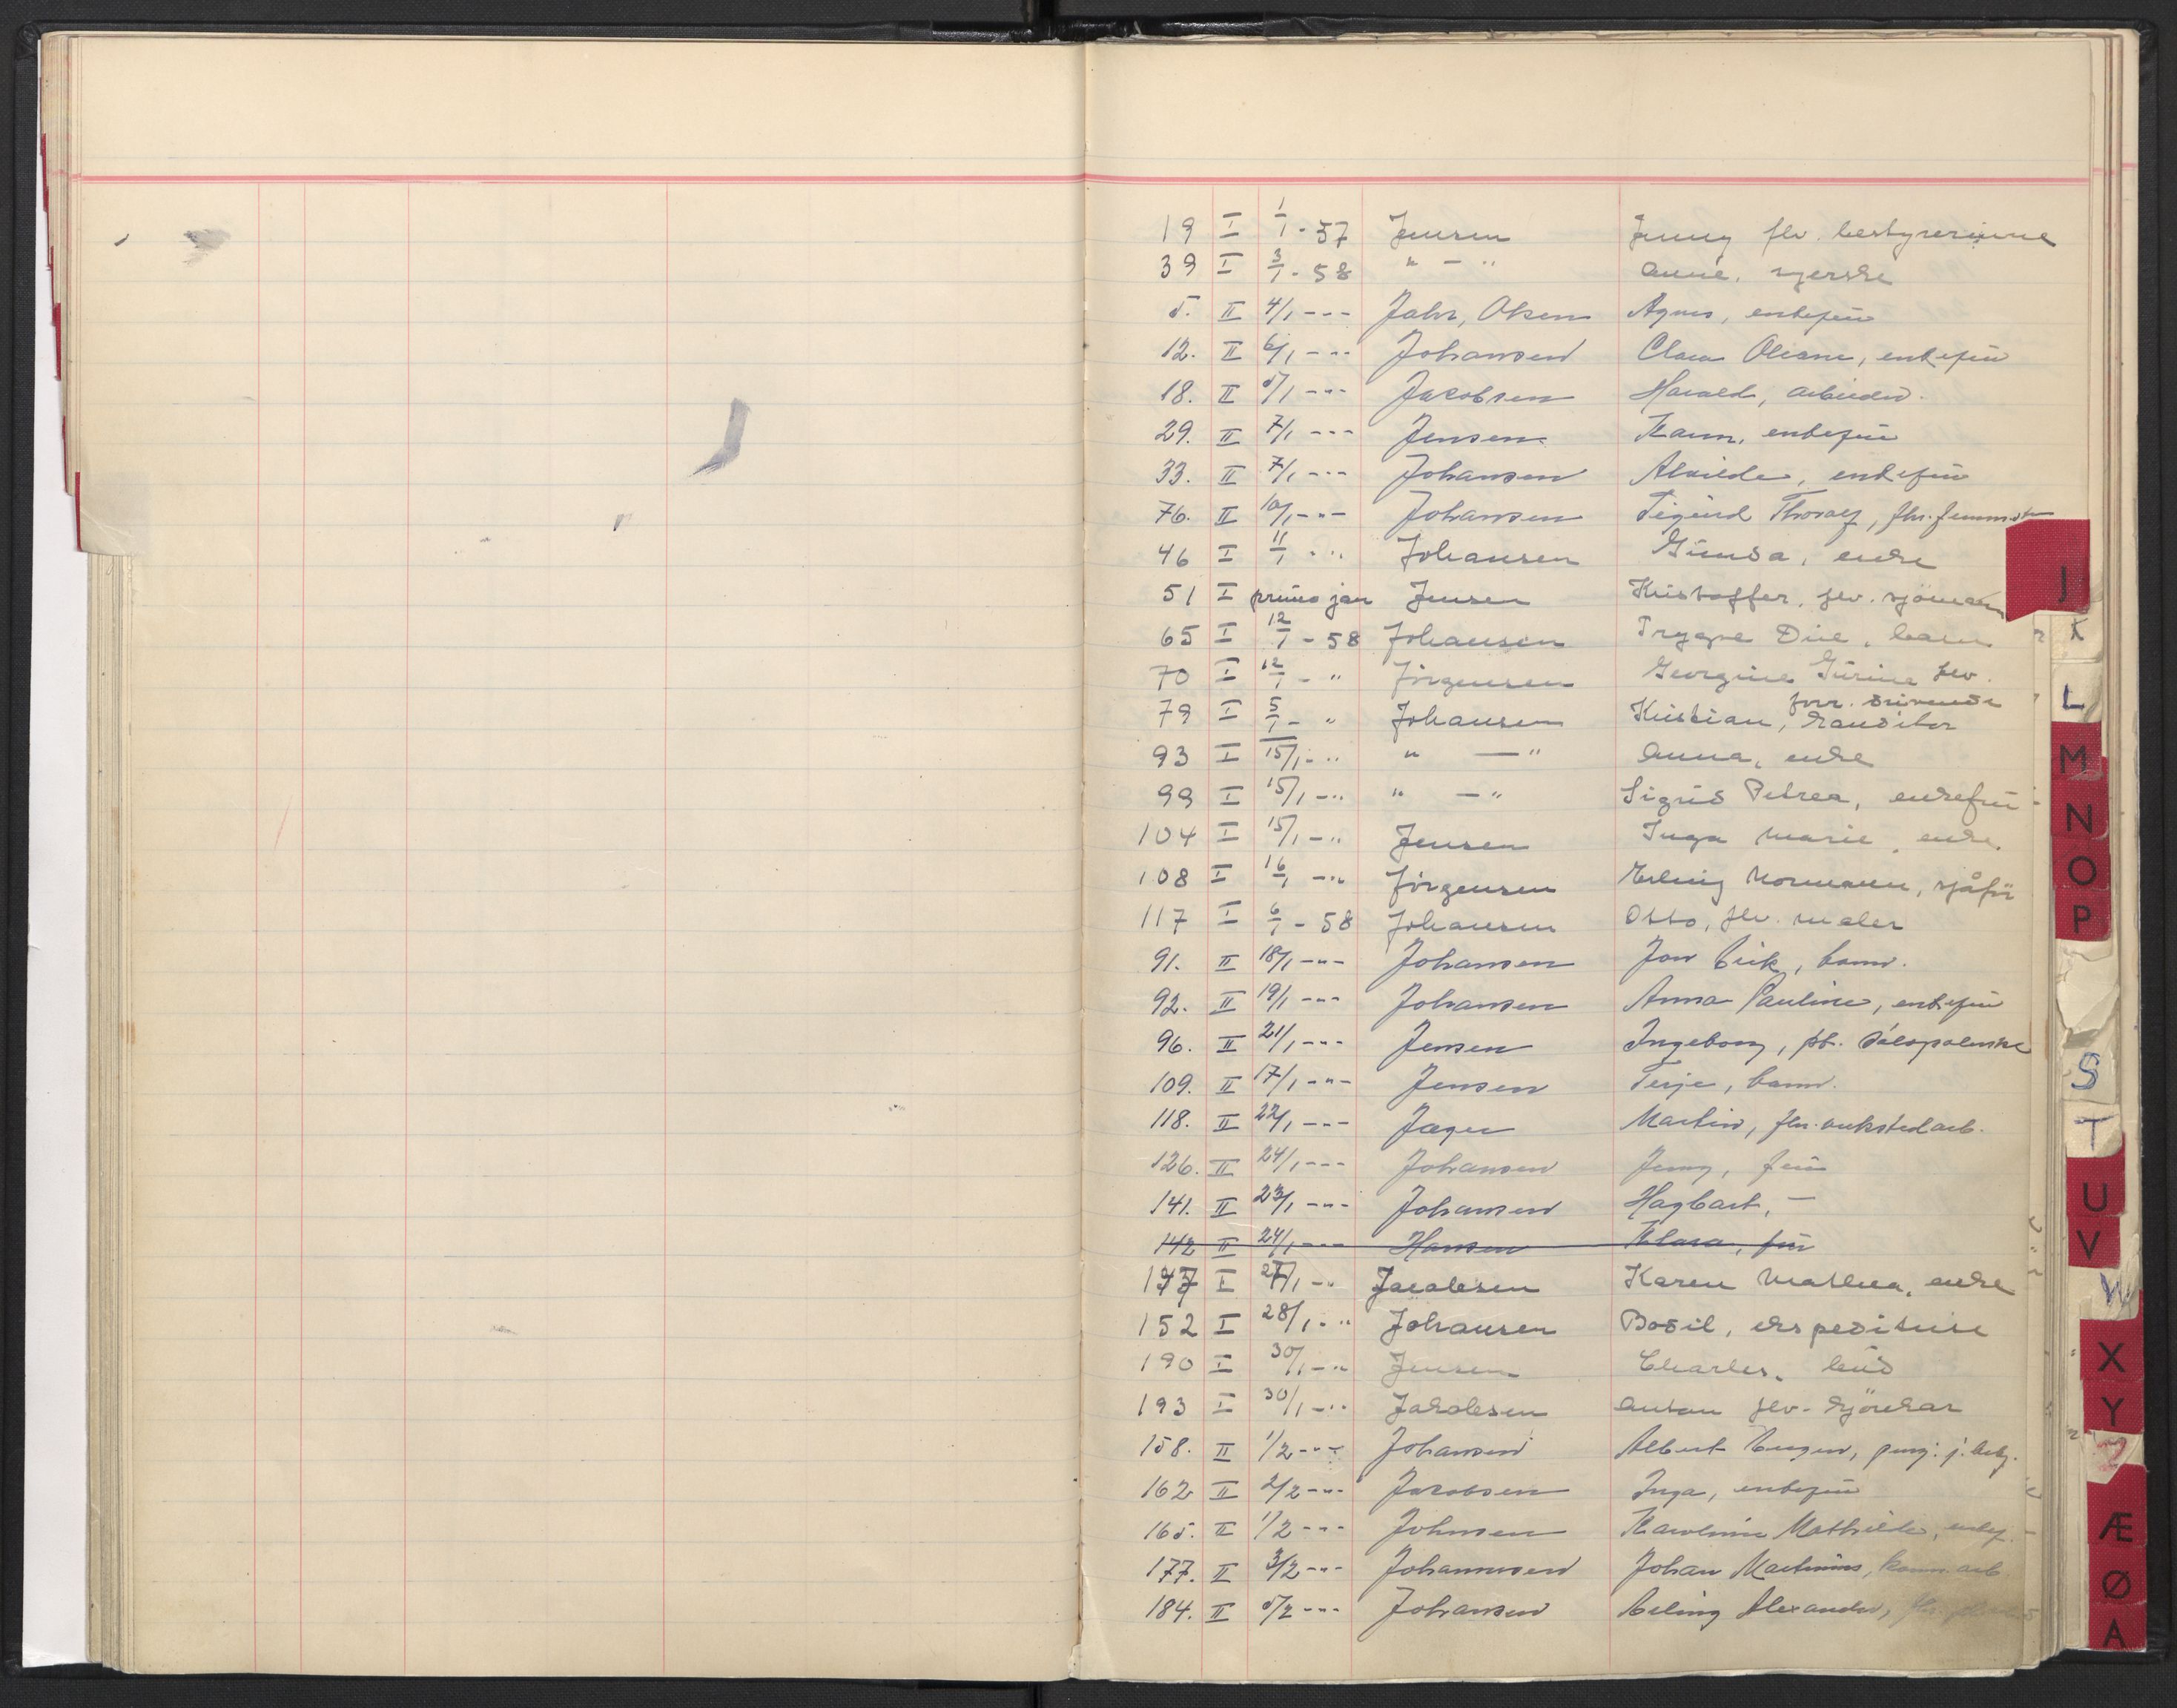 19 I 1/1 - 57 Jensen Jenny flv. bestyrerinne
39 I 3/1 - 58 " - " Anne, syerske
5. II 4/1 - - - Jahr, Olsen Agnes, enkefru
12. II 6/1 - - - Johansen Clara Oleane, enkefru
18. II 5/1 - - - Jacobsen Harald, arbeider.
29. II 7/1 - - - Jensen Karen, enkefru
33. II 7/1 - - - Johansen Alvilde, enkefru
76. II 10/1 - " - Johansen Sigurd Thoralf,
46 I 11/1 - " Johansen Gunda, enke
51 I primo jan Jensen Kristoffer, flv. sjömann
65 I 12/1 - 58 Johansen Trygve barn
70 I 12/1 - " Jörgensen Georgine Gurine flv.
79 I 5/1 - " Johansen Kristian, forr. drivende
93 I 15/1 - " " - " Anna, enke
99 I 15/1 - " " - " Sigrid Petrea, enkefru
104 I 15/1 - " Jensen Inga Marie, enke.
108 I 16/1 - " Jörgensen Erling Normann, sjåför
117 I 6/1 - 58 Johansen Otto, flv. maler
91. II 18/1 - " - Johansen Jon Erik, barn.
92. II 19/1 - " - Johansen Anna Pauline, enkefru
96. II 21/1 - " - Jensen Ingeborg,
109. II 17/1 - " - Jensen Terje, barn.
118. II 22/1 - - - Jæger Martin, flv. verkstedarb.
126. II 24/1 - - - Johansen Jenny, fru
141. II 23/1 - - - Johansen Hagbart, -
142 II 24/1 - - - Hansen Klara, fru
147 I 27/1 - " Jacobsen Karen Mathea, enke
152 I 28/1 - " Johansen Bodil, ekspeditrise
190 I 30/1 - " Jensen Charles, bud
193 I 30/1 - " Jakobsen Anton flv. kjörekar
158. II 1/2 - " - Johansen Albert Eugen,
162 II 2/2 - " - Jacobsen Inga, enkefru
165. II 1/2 - - - Johnsen Karoline Mathilde, enkef.
177. II 3/2 - - - Johannesen Johan Martinius, komm. arb
184. II 5/2 - - - Johansen Erling Alexander, flv.
J
K
L
M
N
O
P
S
T
U
V
W
X
Y
Z
Æ
Ø
A